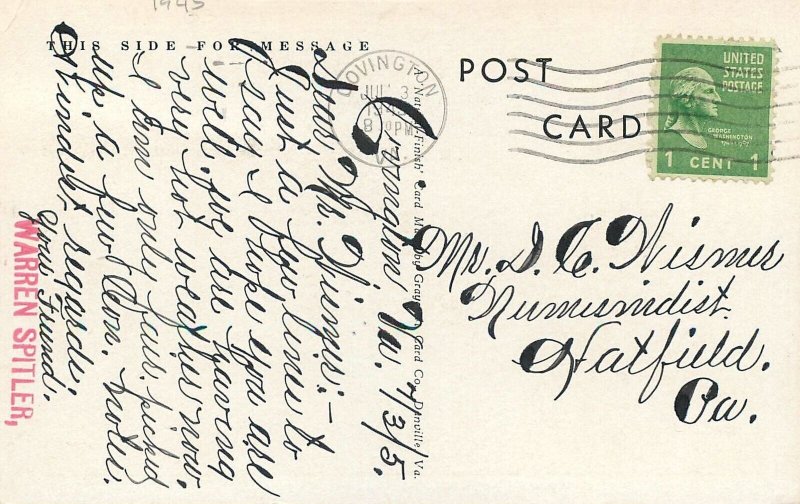 1945
THIS SIDE FOR MESSAGE
Covington Va. 7/3/5.
Dear Mr. Wismer:-
Just a few lines to
say I hope you are
well. we are having
very hot weather now.
I am only fair. picked
up a few Con. notes.
Kindest regards.
your friend.
WARREN SPITLER,
A 'Natural-Finish' Card Made by Graycraft Card Co., Danville, Va.
COVINGTON
JUL 3
8 PM
VA.
POST
CARD
UNITED
STATES
POSTAGE
GEORGE
WASHINGTON
1 CENT 1
Mr. D. C. Wismer
Numismidist.
Hatfield.
Pa.